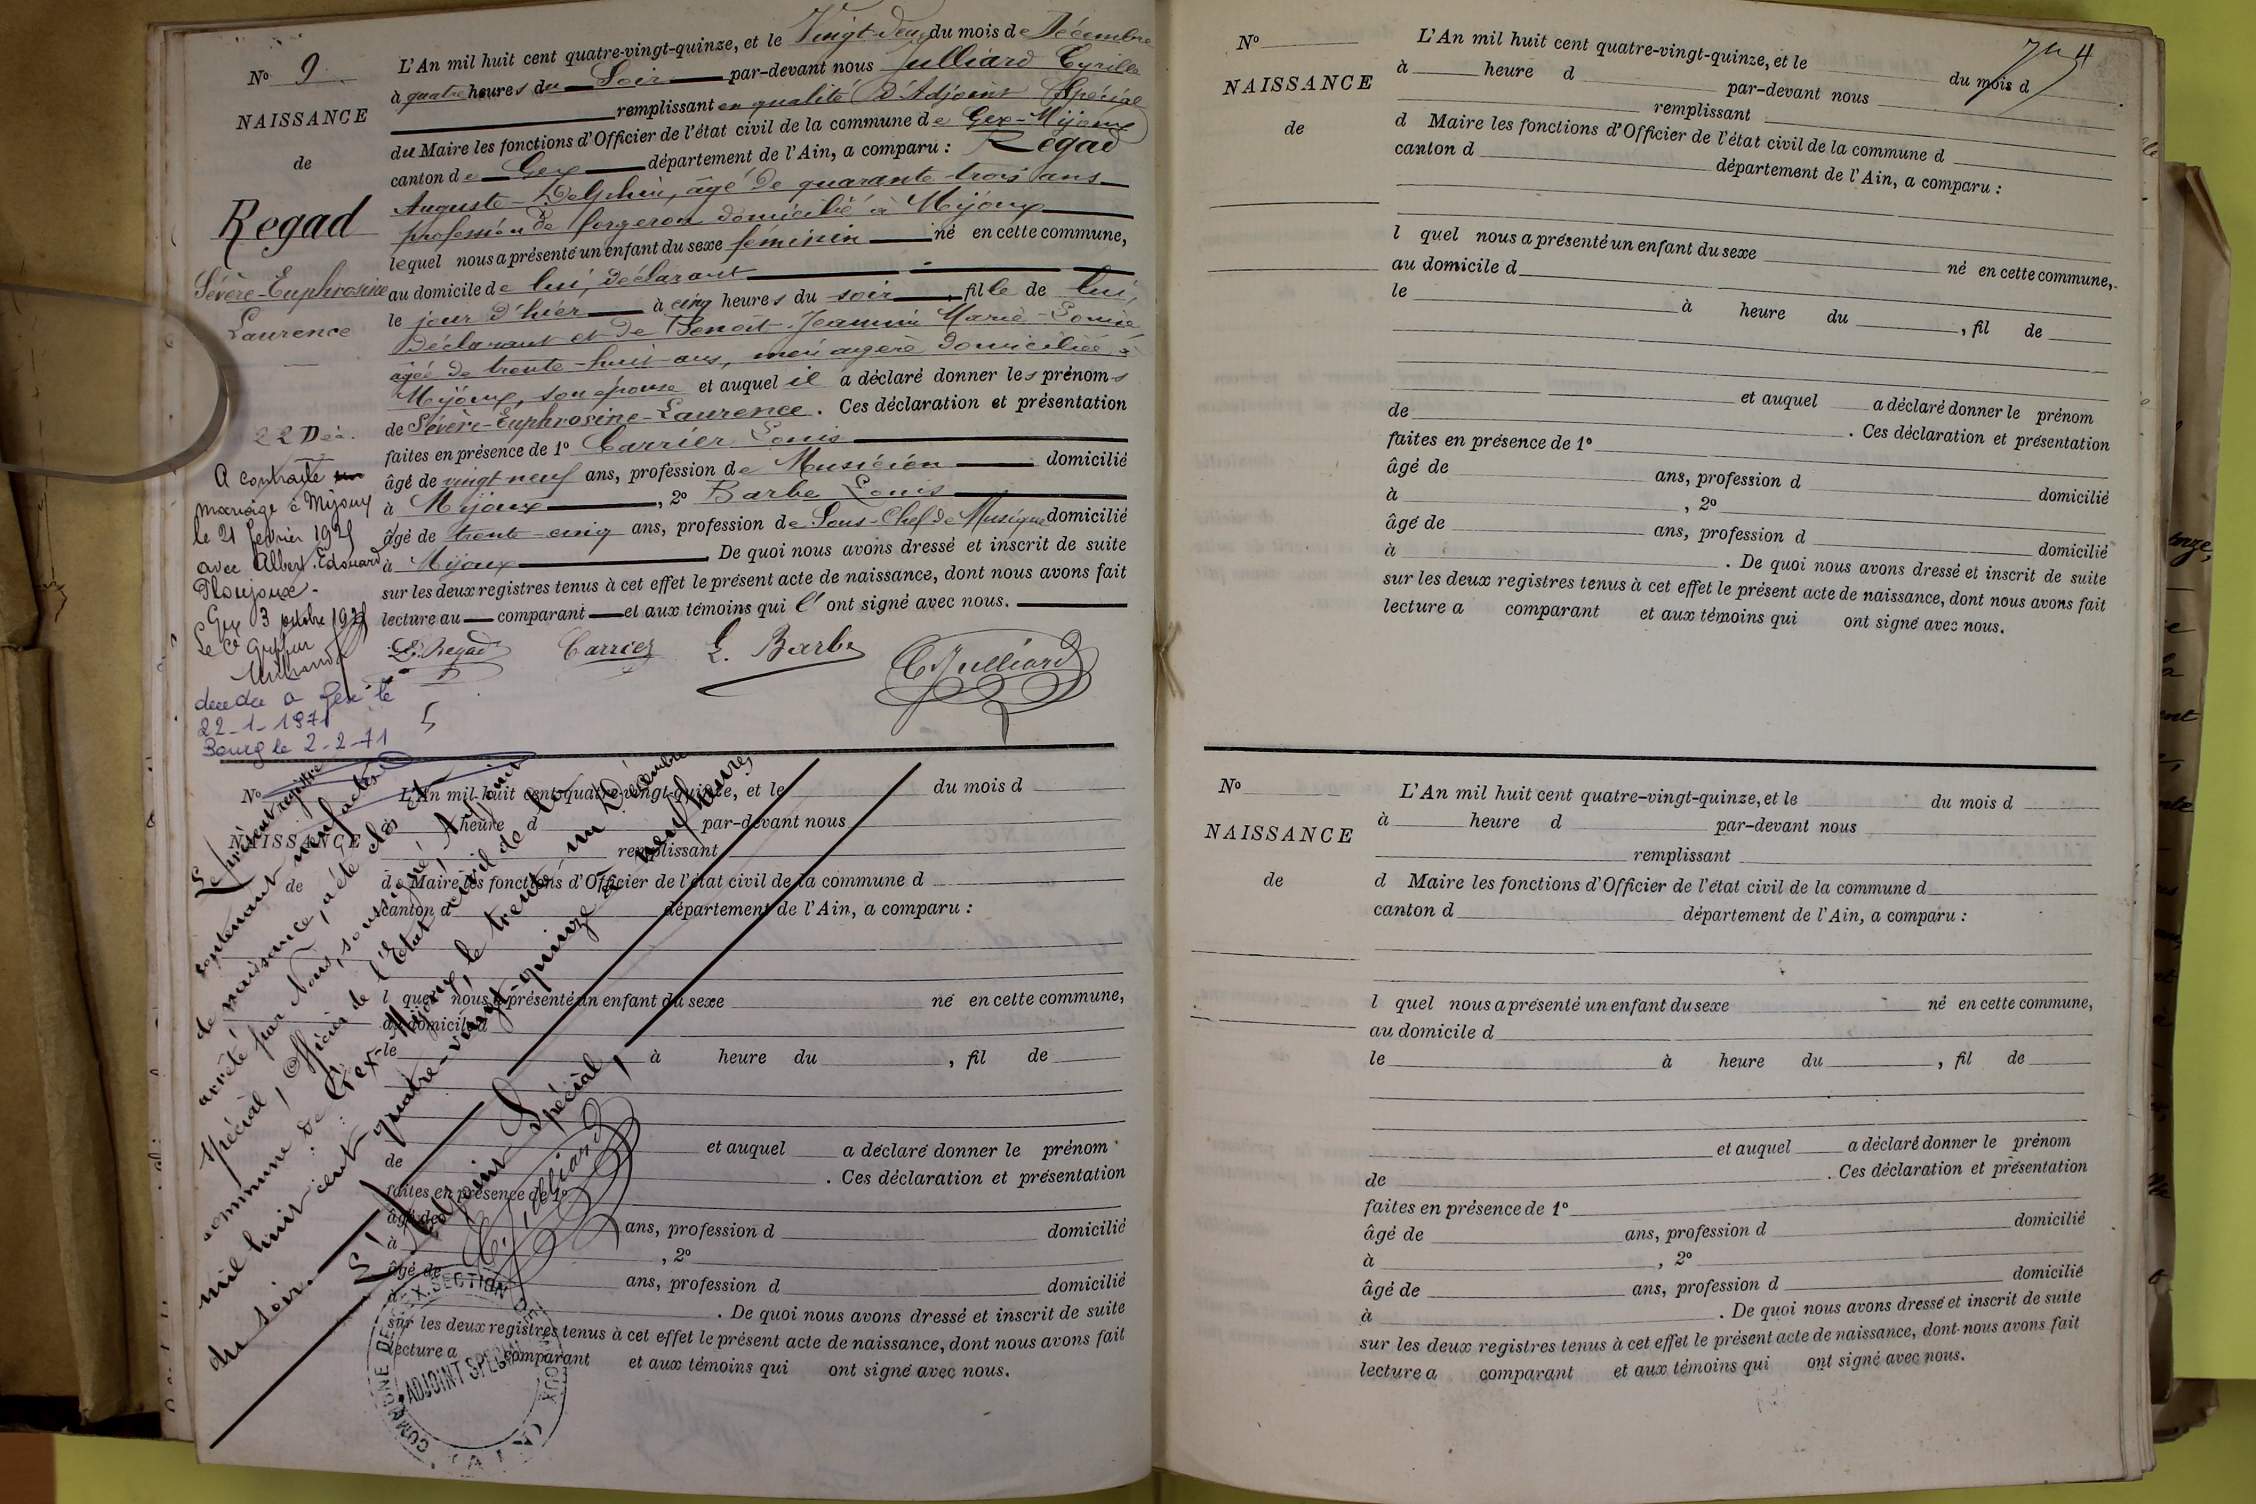 No 9
NAISSANCE
de
Regad
Sévère-Euphrosine
Laurence
22 Déc.
A contracté
mariage à Mijoux
le 21 février 1925
avec Albert Edouard
Ploujoux.
Gex 3 octobre
Le Cs Greffier
décédée à Gex le
22-1-1971
Bourg le 2-2-71
L'An mil huit cent quatre-vingt-quinze, et le Vingt-deux du mois de Décembre
à quatre heures du Soir par-devant nous Julliard Cyrille
remplissant en qualité d'Adjoint Spécial
du Maire les fonctions d'Officier de l'état civil de la commune de Gex-Mijoux
canton de Gex département de l'Ain, a comparu : Regad
Auguste-Delphin, âgé de quarante-trois ans
profession de forgeron domicilié à Mijoux
lequel nous a présenté un enfant du sexe féminin né en cette commune,
au domicile de lui, déclarant
le jour d'hier à cinq heures du soir, fille de lui,
déclarant et de Benoit-Jeannin Marie-Louise
âgée de trente-huit ans, ménagère domiciliée à
Mijoux, son épouse et auquel il a déclaré donner les prénoms
de Sévère-Euphrosine-Laurence. Ces déclaration et présentation
faites en présence de 1º Carrier Louis
âgé de vingt neuf ans, profession de Musicien domicilié
à Mijoux, 2º Barbe Louis
âgé de trente-cinq ans, profession de Sous-Chef de Musique domicilié
à Mijoux. De quoi nous avons dressé et inscrit de suite
sur les deux registres tenus à cet effet le présent acte de naissance, dont nous avons fait
lecture au comparant et aux témoins qui l' ont signé avec nous.
D. Regad Carrier L. Barbe C. Julliard
No
NAISSANCE
de
L'An mil huit cent quatre-vingt-quinze, et le du mois d
à heure d par-devant nous
remplissant
d Maire les fonctions d'Officier de l'état civil de la commune d
canton d département de l'Ain, a comparu :
l quel nous a présenté un enfant du sexe né en cette commune,
au domicile d
le à heure du , fil de
et auquel a déclaré donner le prénom
de . Ces déclaration et présentation
faites en présence de 1º
âgé de ans, profession d domicilié
à , 2º
âgé de ans, profession d domicilié
à . De quoi nous avons dressé et inscrit de suite
sur les deux registres tenus à cet effet le présent acte de naissance, dont nous avons fait
lecture a comparant et aux témoins qui ont signé avec nous.
Le présent registre
contenant neuf actes
de naissance, a été clos et
arrêté par Nous, soussigné, Adjoint
spécial, Officier de l'Etat civil de la
commune de Gex-Mijoux, le trente-un Décembre
mil huit cent quatre-vingt-quinze à neuf heures
du soir.
L'Adjoint Spécial,
C. Julliard
COMMUNE DE GEX. SECTION DE MIJOUX
ADJOINT SPECIAL
(AIN)
4
No
NAISSANCE
de
L'An mil huit cent quatre-vingt-quinze, et le du mois d
à heure d par-devant nous
remplissant
d Maire les fonctions d'Officier de l'état civil de la commune d
canton d département de l'Ain, a comparu :
l quel nous a présenté un enfant du sexe né en cette commune,
au domicile d
le à heure du , fil de
et auquel a déclaré donner le prénom
de . Ces déclaration et présentation
faites en présence de 1º
âgé de ans, profession d domicilié
à , 2º
âgé de ans, profession d domicilié
à . De quoi nous avons dressé et inscrit de suite
sur les deux registres tenus à cet effet le présent acte de naissance, dont nous avons fait
lecture a comparant et aux témoins qui ont signé avec nous.
No
NAISSANCE
de
L'An mil huit cent quatre-vingt-quinze, et le du mois d
à heure d par-devant nous
remplissant
d Maire les fonctions d'Officier de l'état civil de la commune d
canton d département de l'Ain, a comparu :
l quel nous a présenté un enfant du sexe né en cette commune,
au domicile d
le à heure du , fil de
et auquel a déclaré donner le prénom
de . Ces déclaration et présentation
faites en présence de 1º
âgé de ans, profession d domicilié
à , 2º
âgé de ans, profession d domicilié
à . De quoi nous avons dressé et inscrit de suite
sur les deux registres tenus à cet effet le présent acte de naissance, dont nous avons fait
lecture a comparant et aux témoins qui ont signé avec nous.